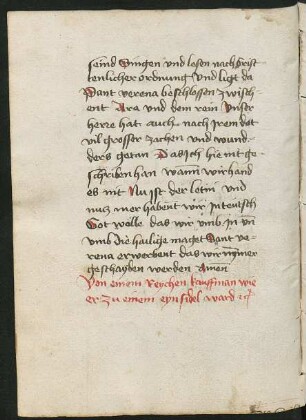 seind Singen und lesen nach crist
tenlicher ordnung Und ligt da
Sant verena beschlossen zwisch
ent Ara und dem rein Unser
herre hat auch nach irem det
vil grosser zachen und wund
ders getan Das ich hie nit ge
schriben han wann wir hand
es nit Nu ist der letin und
nutz mer habent wir in teutsch
Got wölle das wir umb in un
umb die hailige maget Sant ve
rena erwerbent das wir nimer
geschayden werden Amen
Von einem Reychen kauffman wie
er zu einem eynsidel ward